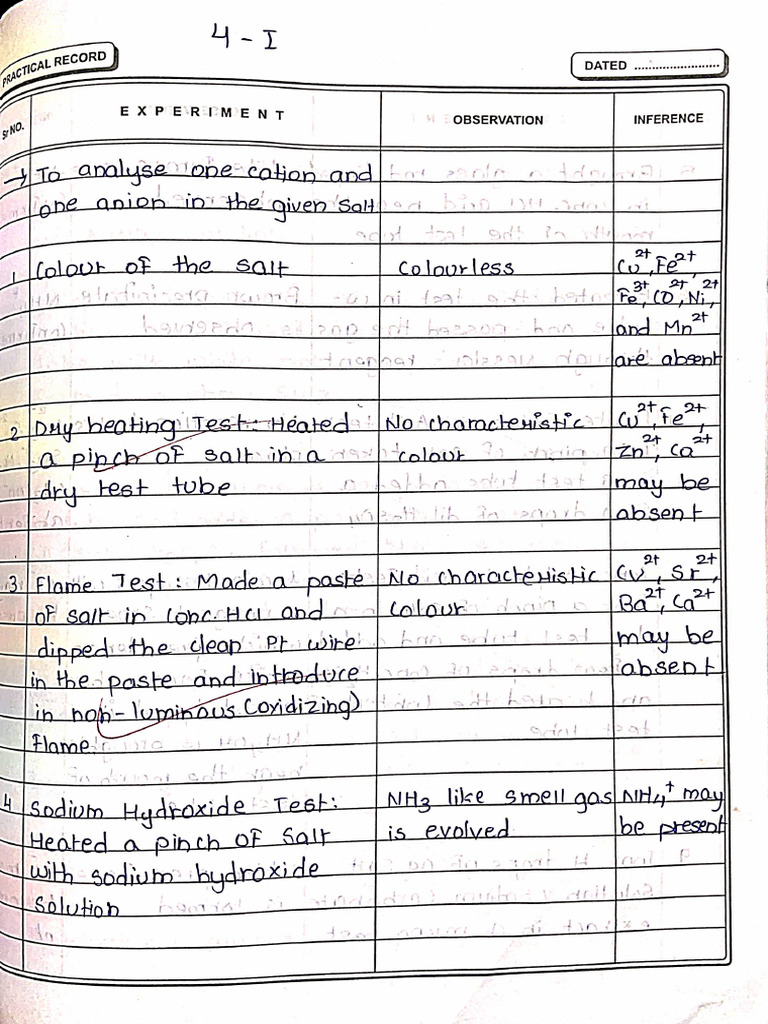 4 - I
PRACTICAL RECORD
DATED ..........................
Sr NO.
EXPERIMENT
OBSERVATION
INFERENCE
→ To analyse one cation and
one anion in the given salt
1 Colour of the salt
Colourless
Cu²⁺, Fe²⁺,
Fe³⁺, CO²⁺, Ni²⁺,
and Mn²⁺
are absent
2 Dry heating Test: Heated
a pinch of salt in a
dry test tube
No characteristic
colour
Cu²⁺, Fe²⁺
Zn²⁺, Ca²⁺
may be
absent
3 Flame Test: Made a paste
of salt in Conc. HCl and
dipped the clean Pt wire
in the paste and introduce
in non-luminous (oxidizing)
Flame.
No characteristic
colour
Cu²⁺, Sr²⁺,
Ba²⁺, Ca²⁺
may be
absent
4 Sodium Hydroxide Test:
Heated a pinch of salt
with sodium hydroxide
solution
NH3 like smell gas
is evolved
NH4⁺ may
be present